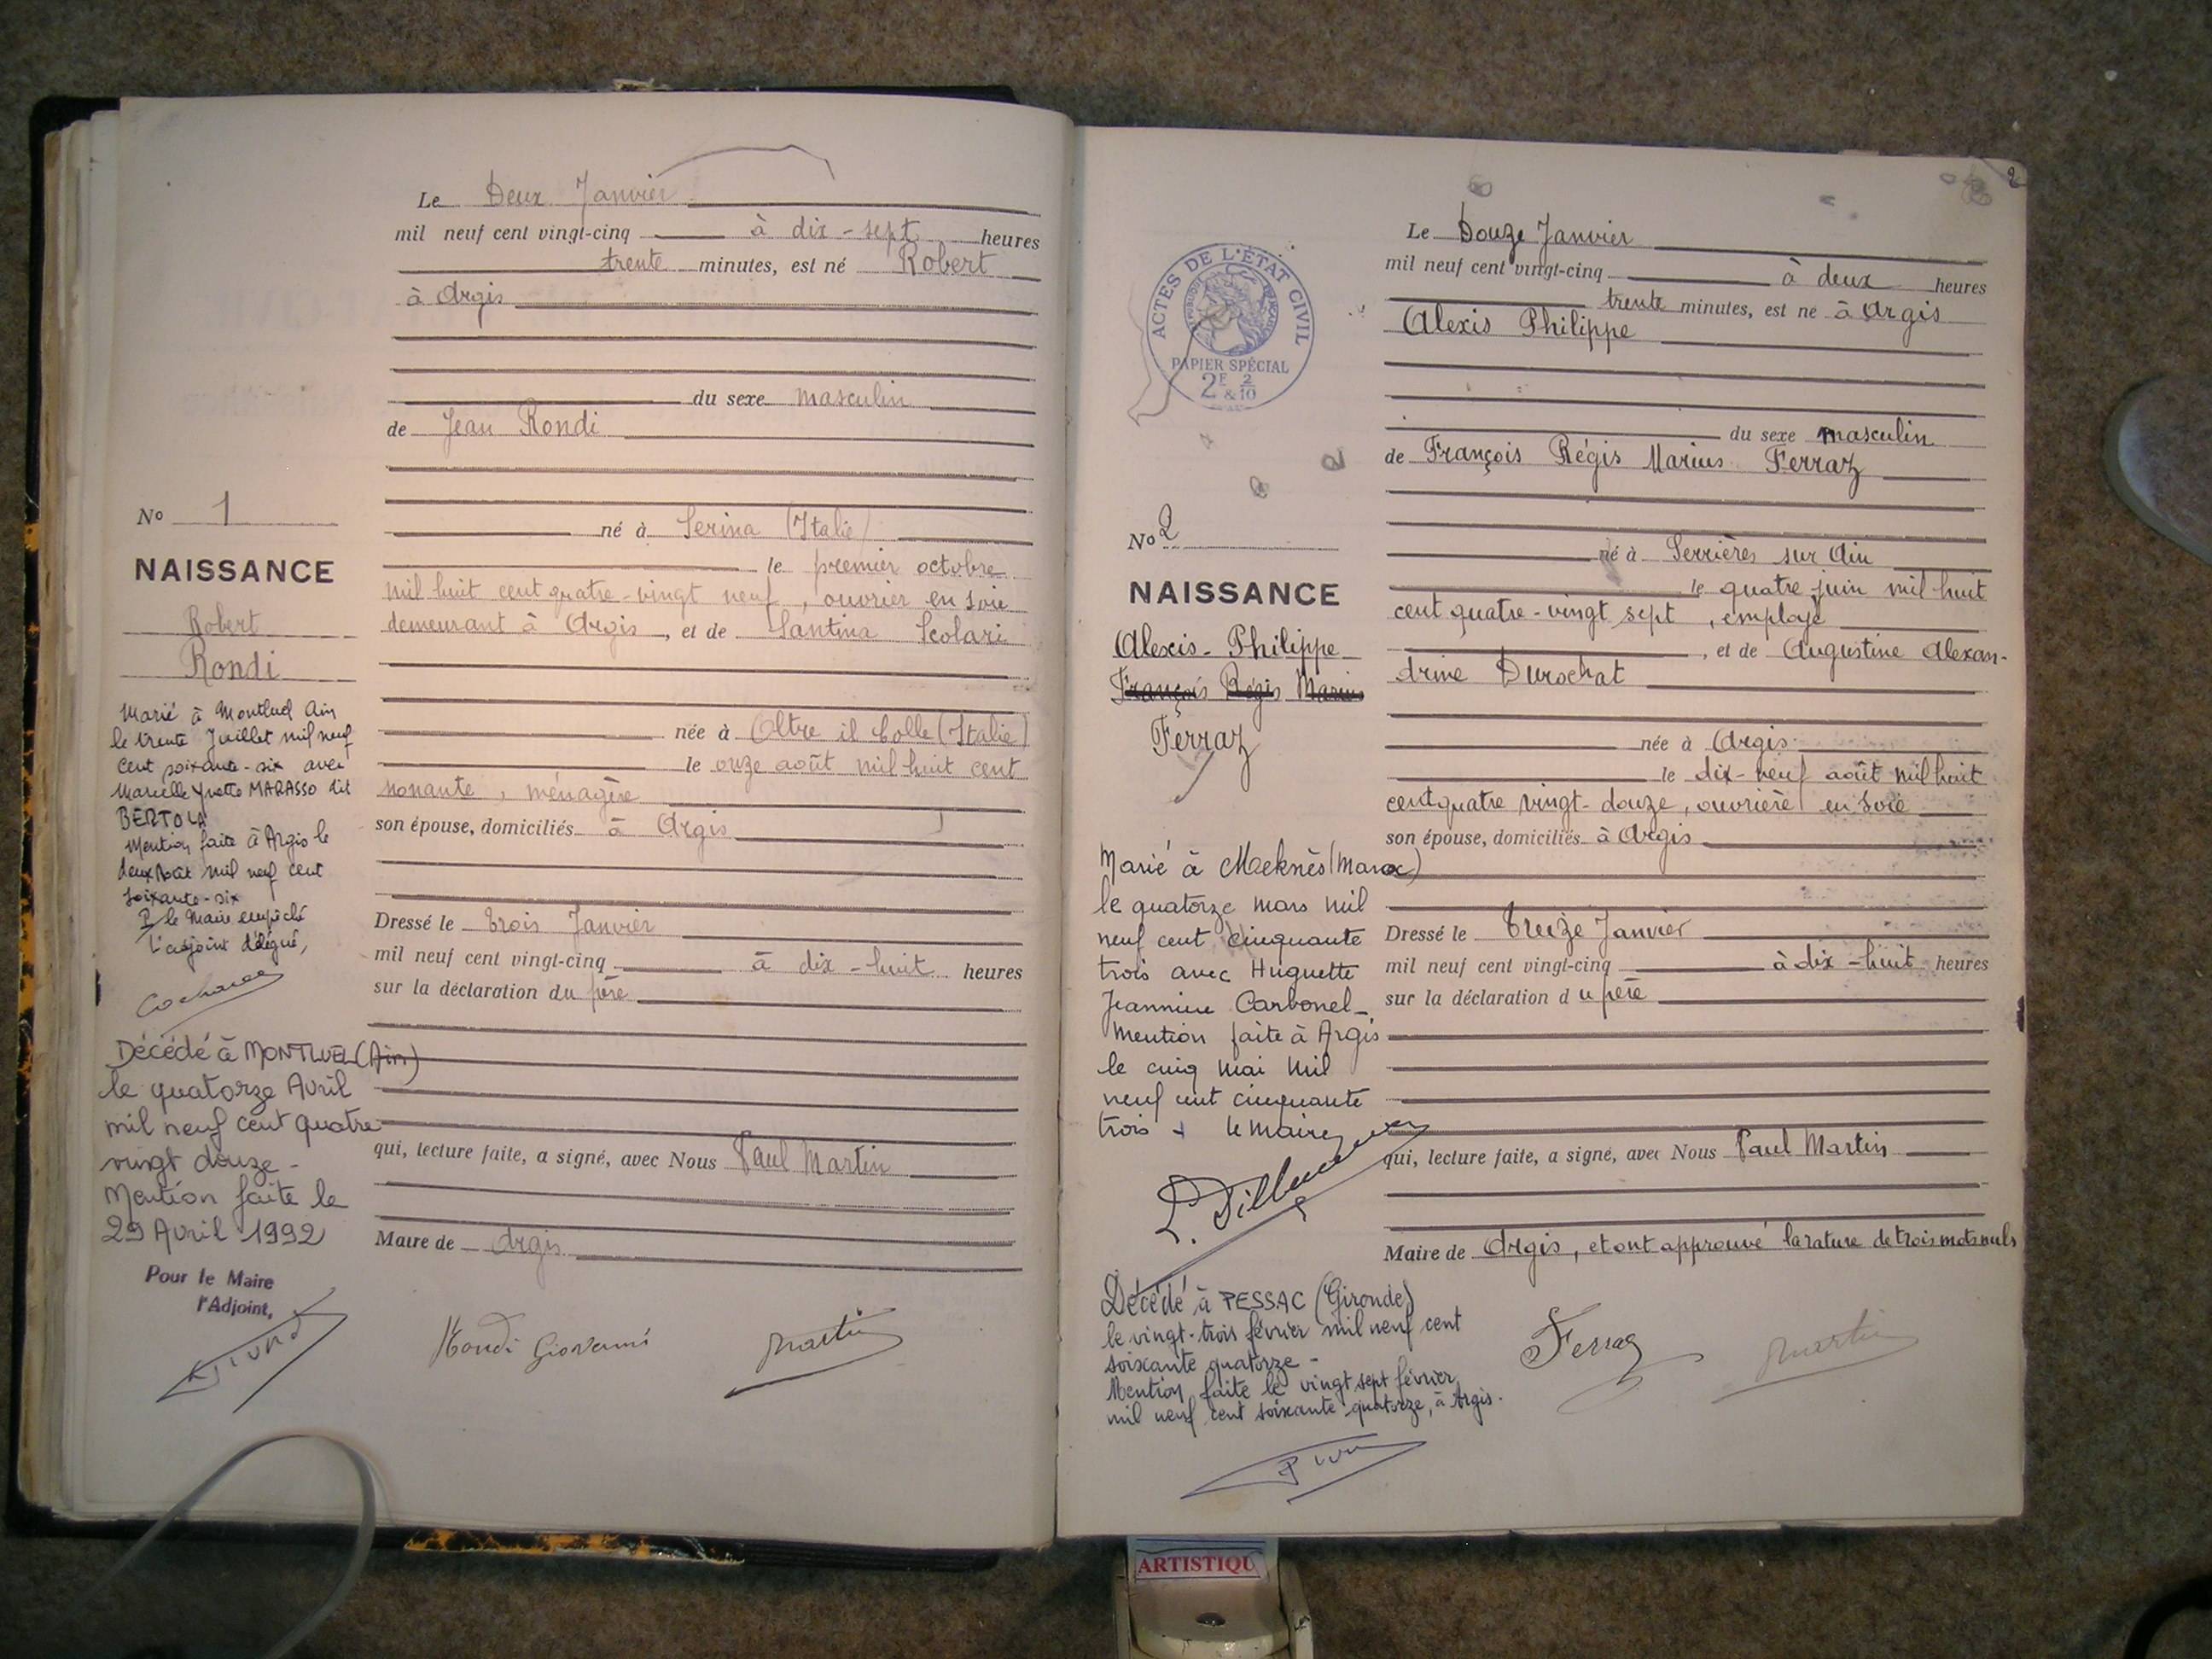 Le Deux Janvier
mil neuf cent vingt-cinq à dix-sept heures
trente minutes, est né Robert
à Argis
du sexe masculin
de Jean Rondi
né à Serina (Italie)
le premier octobre
mil huit cent quatre-vingt neuf, ouvrier en soie
demeurant à Argis, et de Santina Scolari
née à Oltre il Colle (Italie)
le onze août mil huit cent
nonante, ménagère
son épouse, domiciliés à Argis
Dressé le trois Janvier
mil neuf cent vingt-cinq à dix-huit heures
sur la déclaration du père
qui, lecture faite, a signé, avec Nous Paul Martin
Maire de Argis
Rondi Giovanni
Martin
No 1
NAISSANCE
Robert
Rondi
Marié à Montluel Ain
le trente Juillet mil neuf
cent soixante-six avec
Marcelle Yvette MARASSO dit
BERTOLA
Mention faite à Argis le
deux Août mil neuf cent
soixante-six
P. le Maire empêché
L'adjoint délégué,
Décédé à MONTLUEL (Ain)
le quatorze Avril
mil neuf cent quatre
vingt douze -
Mention faite le
29 Avril 1992
Pour le Maire
l'Adjoint,
2
Le Douze Janvier
mil neuf cent vingt-cinq à deux heures
trente minutes, est né à Argis
Alexis Philippe
du sexe masculin
de François Régis Marius Ferraz
né à Serrières sur Ain
le quatre juin mil huit
cent quatre-vingt sept, employé
, et de Augustine Alexan-
drine Durochat
née à Argis
le dix-neuf août mil huit
cent quatre vingt-douze, ouvrière en soie
son épouse, domiciliés à Argis
Dressé le treize Janvier
mil neuf cent vingt-cinq à dix-huit heures
sur la déclaration du père
qui, lecture faite, a signé, avec Nous Paul Martin
Maire de Argis, et ont approuvé la rature de trois mots nuls
Ferraz
Martin
ACTES DE L'ÉTAT CIVIL
RÉPUBLIQUE FRANÇAISE
PAPIER SPÉCIAL
2F & 2/10
No 2
NAISSANCE
Alexis-Philippe
François Régis Marius
Ferraz
Marié à Meknès (Maroc)
le quatorze mars mil
neuf cent cinquante
trois avec Huguette
Jeannine Carbonel_
Mention faite à Argis
le cinq mai mil
neuf cent cinquante
trois - le maire
Décédé à PESSAC (Gironde)
le vingt-trois février mil neuf cent
soixante quatorze -
Mention faite le vingt sept février
mil neuf cent soixante quatorze, à Argis.
ARTISTIQU